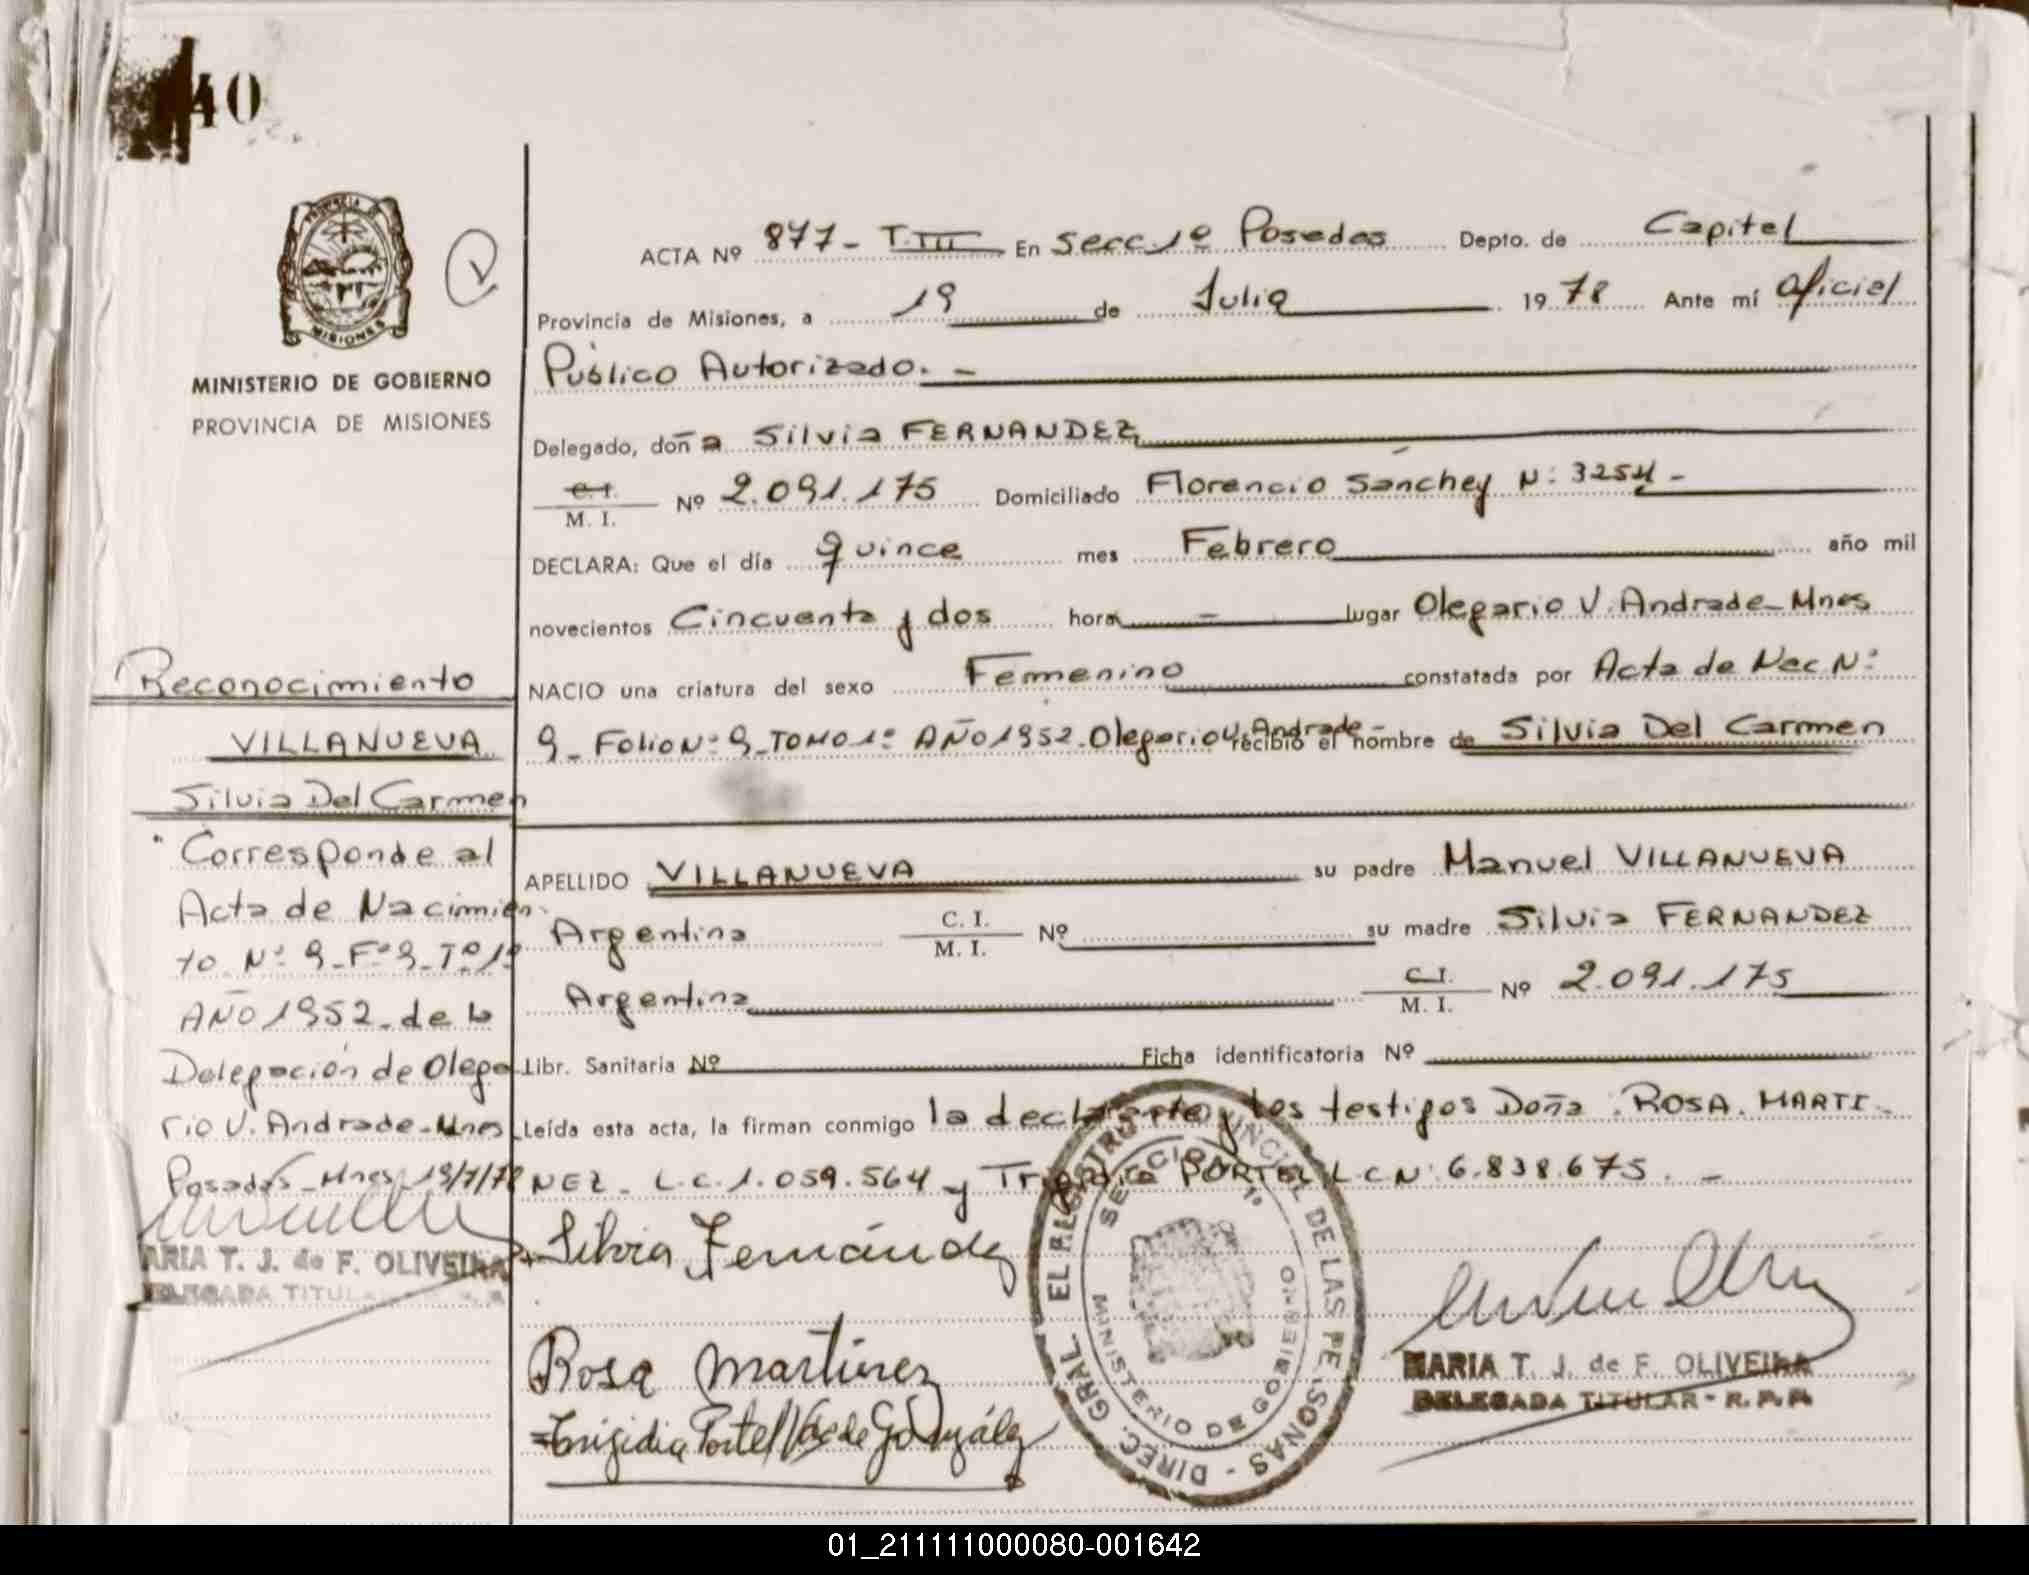 40
PROVINCIA DE
MISIONES
MINISTERIO DE GOBIERNO
PROVINCIA DE MISIONES
ACTA Nº 877- T.III En Secc 1º Posadas Depto. de Capital
Provincia de Misiones, a 19 de Julio 1978 Ante mí Oficial
Público Autorizado. -
Delegado, doña Silvia FERNANDEZ
C.I.
M. I. Nº 2.091.175 Domiciliado Florencio Sánchez N: 3254 -
DECLARA: Que el día quince mes Febrero año mil
novecientos Cincuenta y dos hora - lugar Olegario V. Andrade-Mnes
NACIO una criatura del sexo Femenino constatada por Acta de Nac Nº
9_ Folio Nº 9_TOMO 1º AÑO 1952_Olegario V. Andrade- recibió el nombre de Silvia Del Carmen
APELLIDO VILLANUEVA su padre Manuel VILLANUEVA
Argentina C. I.
M. I. Nº su madre Silvia FERNANDEZ
Argentina C.I.
M. I. Nº 2.091.175
Libr. Sanitaria Nº Ficha identificatoria Nº
Leída esta acta, la firman conmigo la declarante y los testigos Doña ROSA MARTI
NEZ_ L.C. 1.059.564 y PORTEL L.C Nº 6.838.675. -
Silvia Fernández
Rosa Martinez
Portel de González
MARIA T. J. de F. OLIVEIRA
DELEGADA TITULAR - R. P. P.
DIREC. GRAL. EL REGISTRO PROVINCIAL DE LAS PERSONAS -
SECCION 1º
MINISTERIO DE GOBIERNO
Reconocimiento
VILLANUEVA
Silvia Del Carmen
Corresponde al
Acta de Nacimien
to Nº 9_Fº 9_Tº 1º
AÑO 1952_de la
Delegación de Olega
rio V. Andrade-Mnes
Posadas_Mnes_19/7/78
ARIA T. J. de F. OLIVEIRA
DELEGADA TITULAR
01_211111000080-001642